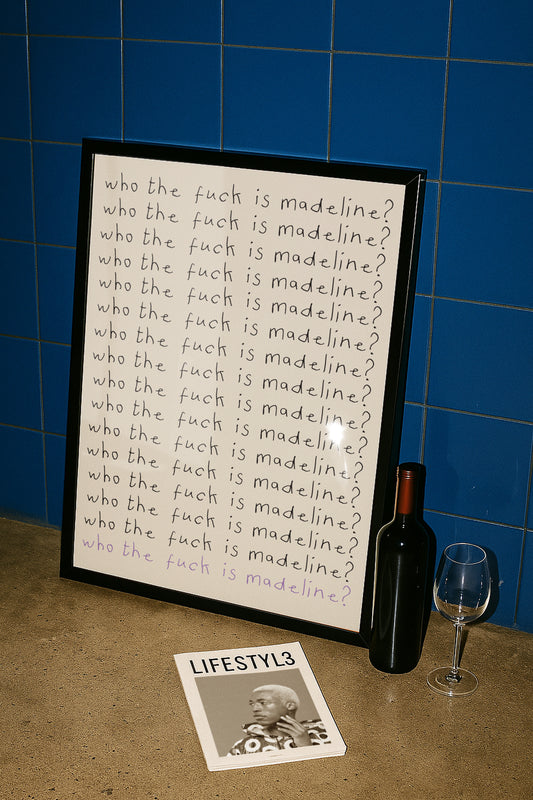 who the fuck is madeline?
who the fuck is madeline?
who the fuck is madeline?
who the fuck is madeline?
who the fuck is madeline?
who the fuck is madeline?
who the fuck is madeline?
who the fuck is madeline?
who the fuck is madeline?
who the fuck is madeline?
who the fuck is madeline?
who the fuck is madeline?
who the fuck is madeline?
who the fuck is madeline?
who the fuck is madeline?
who the fuck is madeline?
LIFESTYL3